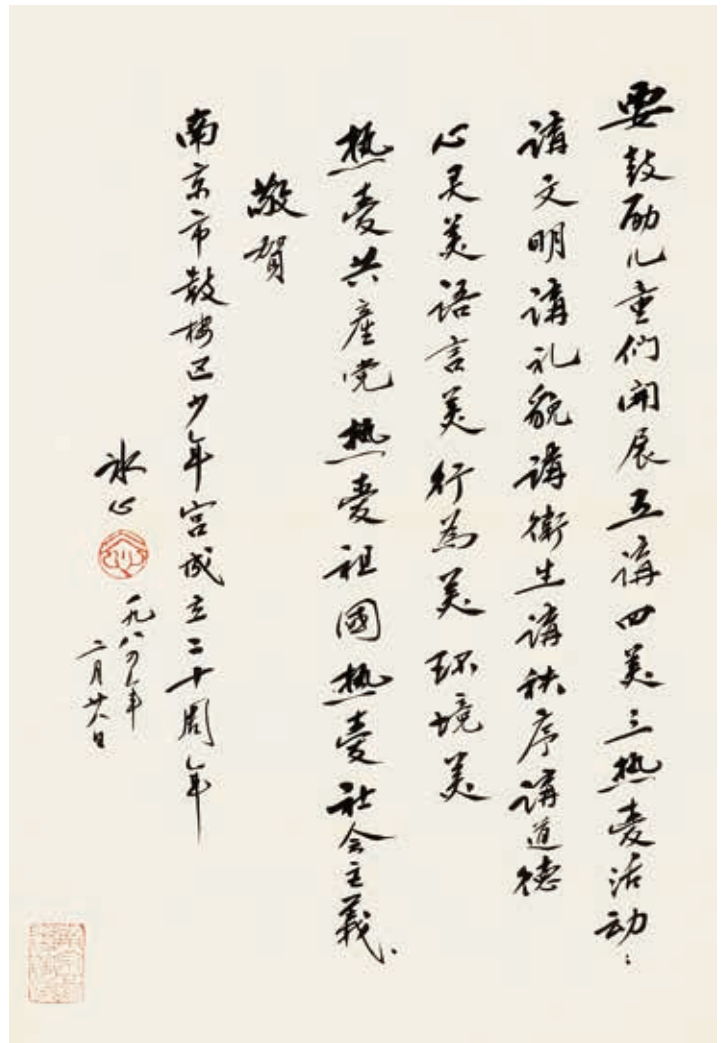 要鼓励儿童们開展五講四美三热爱活动：
講文明講礼貌講衛生講秩序講道德
心灵美语言美行為美环境美
热爱共産党热爱祖國热爱社会主義.
敬贺
南京市鼓楼区少年宫成立二十周年
冰心
一九八四年
二月廿八日